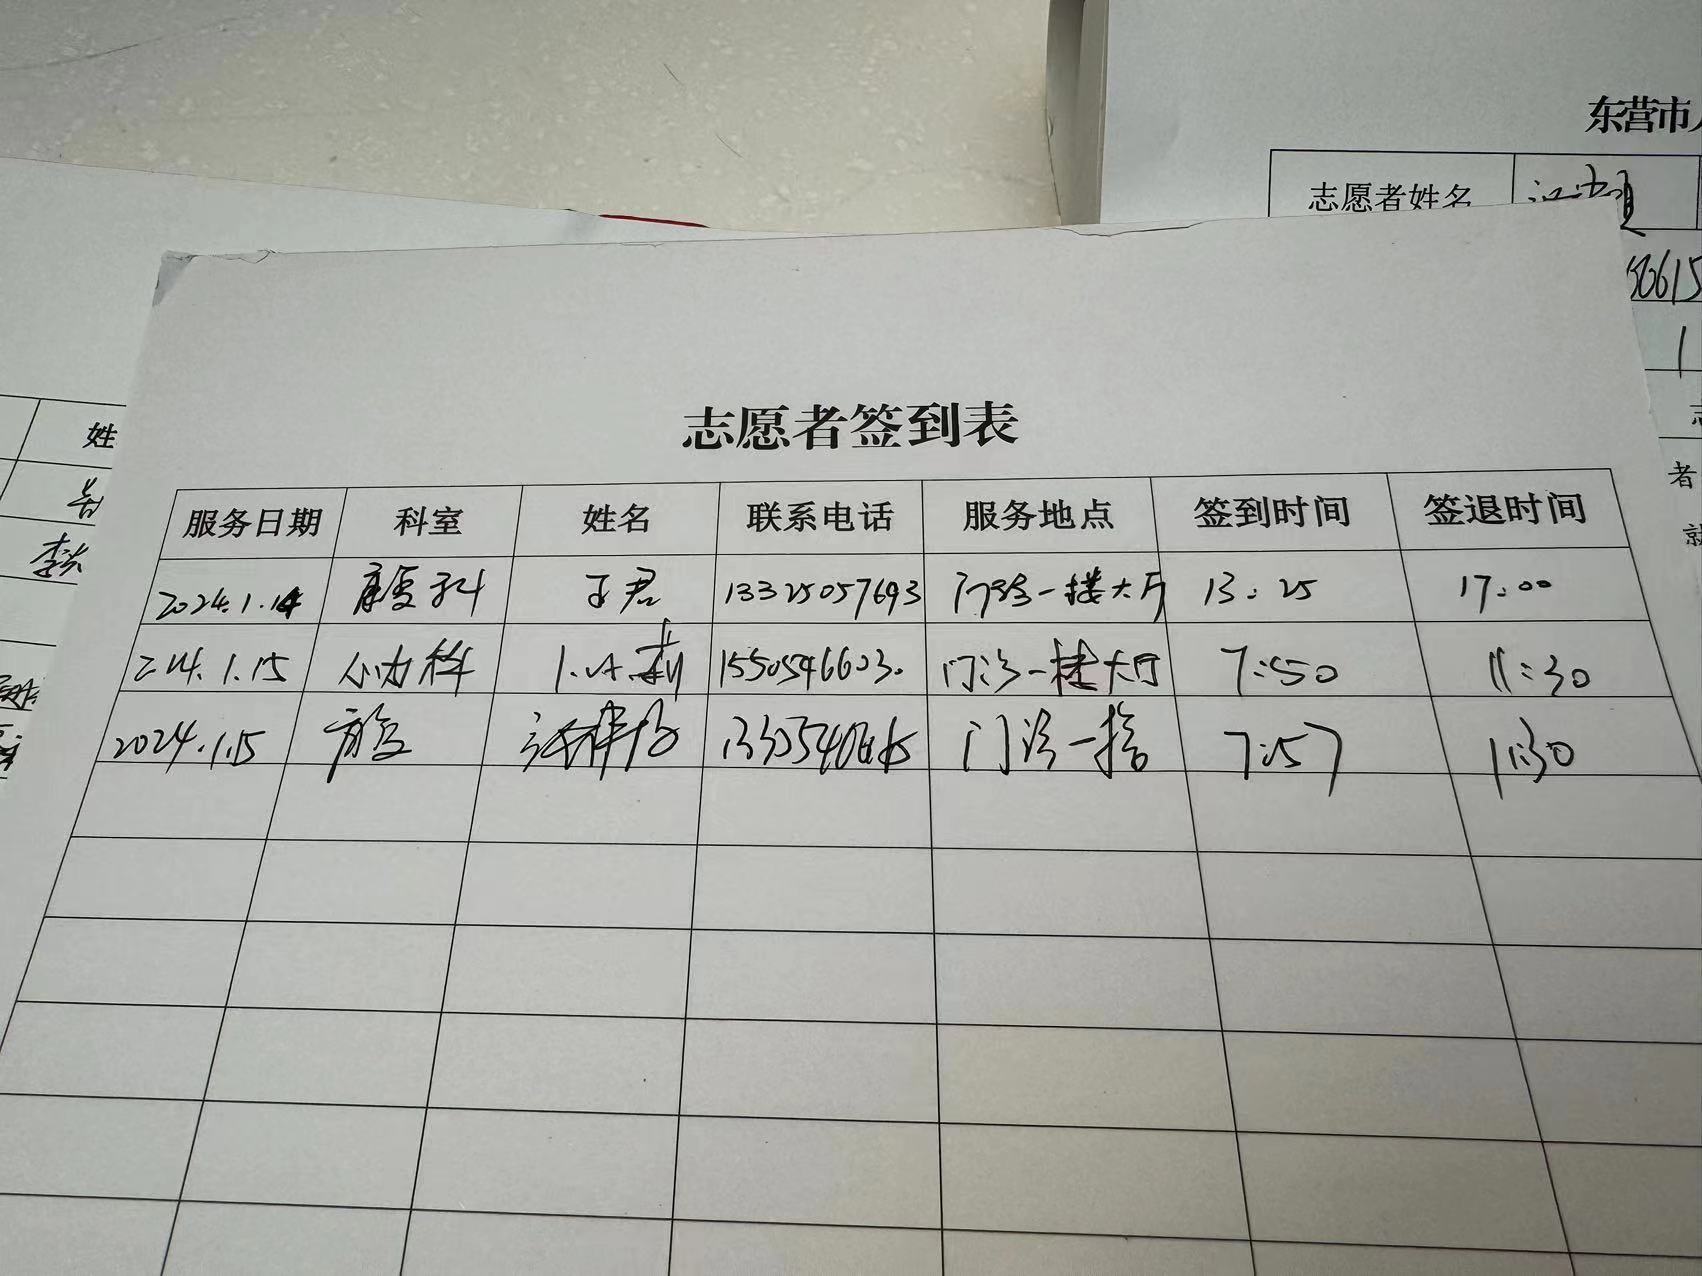 东营市
志愿者姓名
50615
1
志愿者签到表
服务日期 科室 姓名 联系电话 服务地点 签到时间 签退时间
2024.1.14 康复科 王君 13325057693 门诊一楼大厅 13:25 17:00
2024.1.15 小儿科 15505466030 门诊一楼大厅 7:50 11:30
2024.1.15 康复 门诊一楼 7:57 11:30
姓
者
就